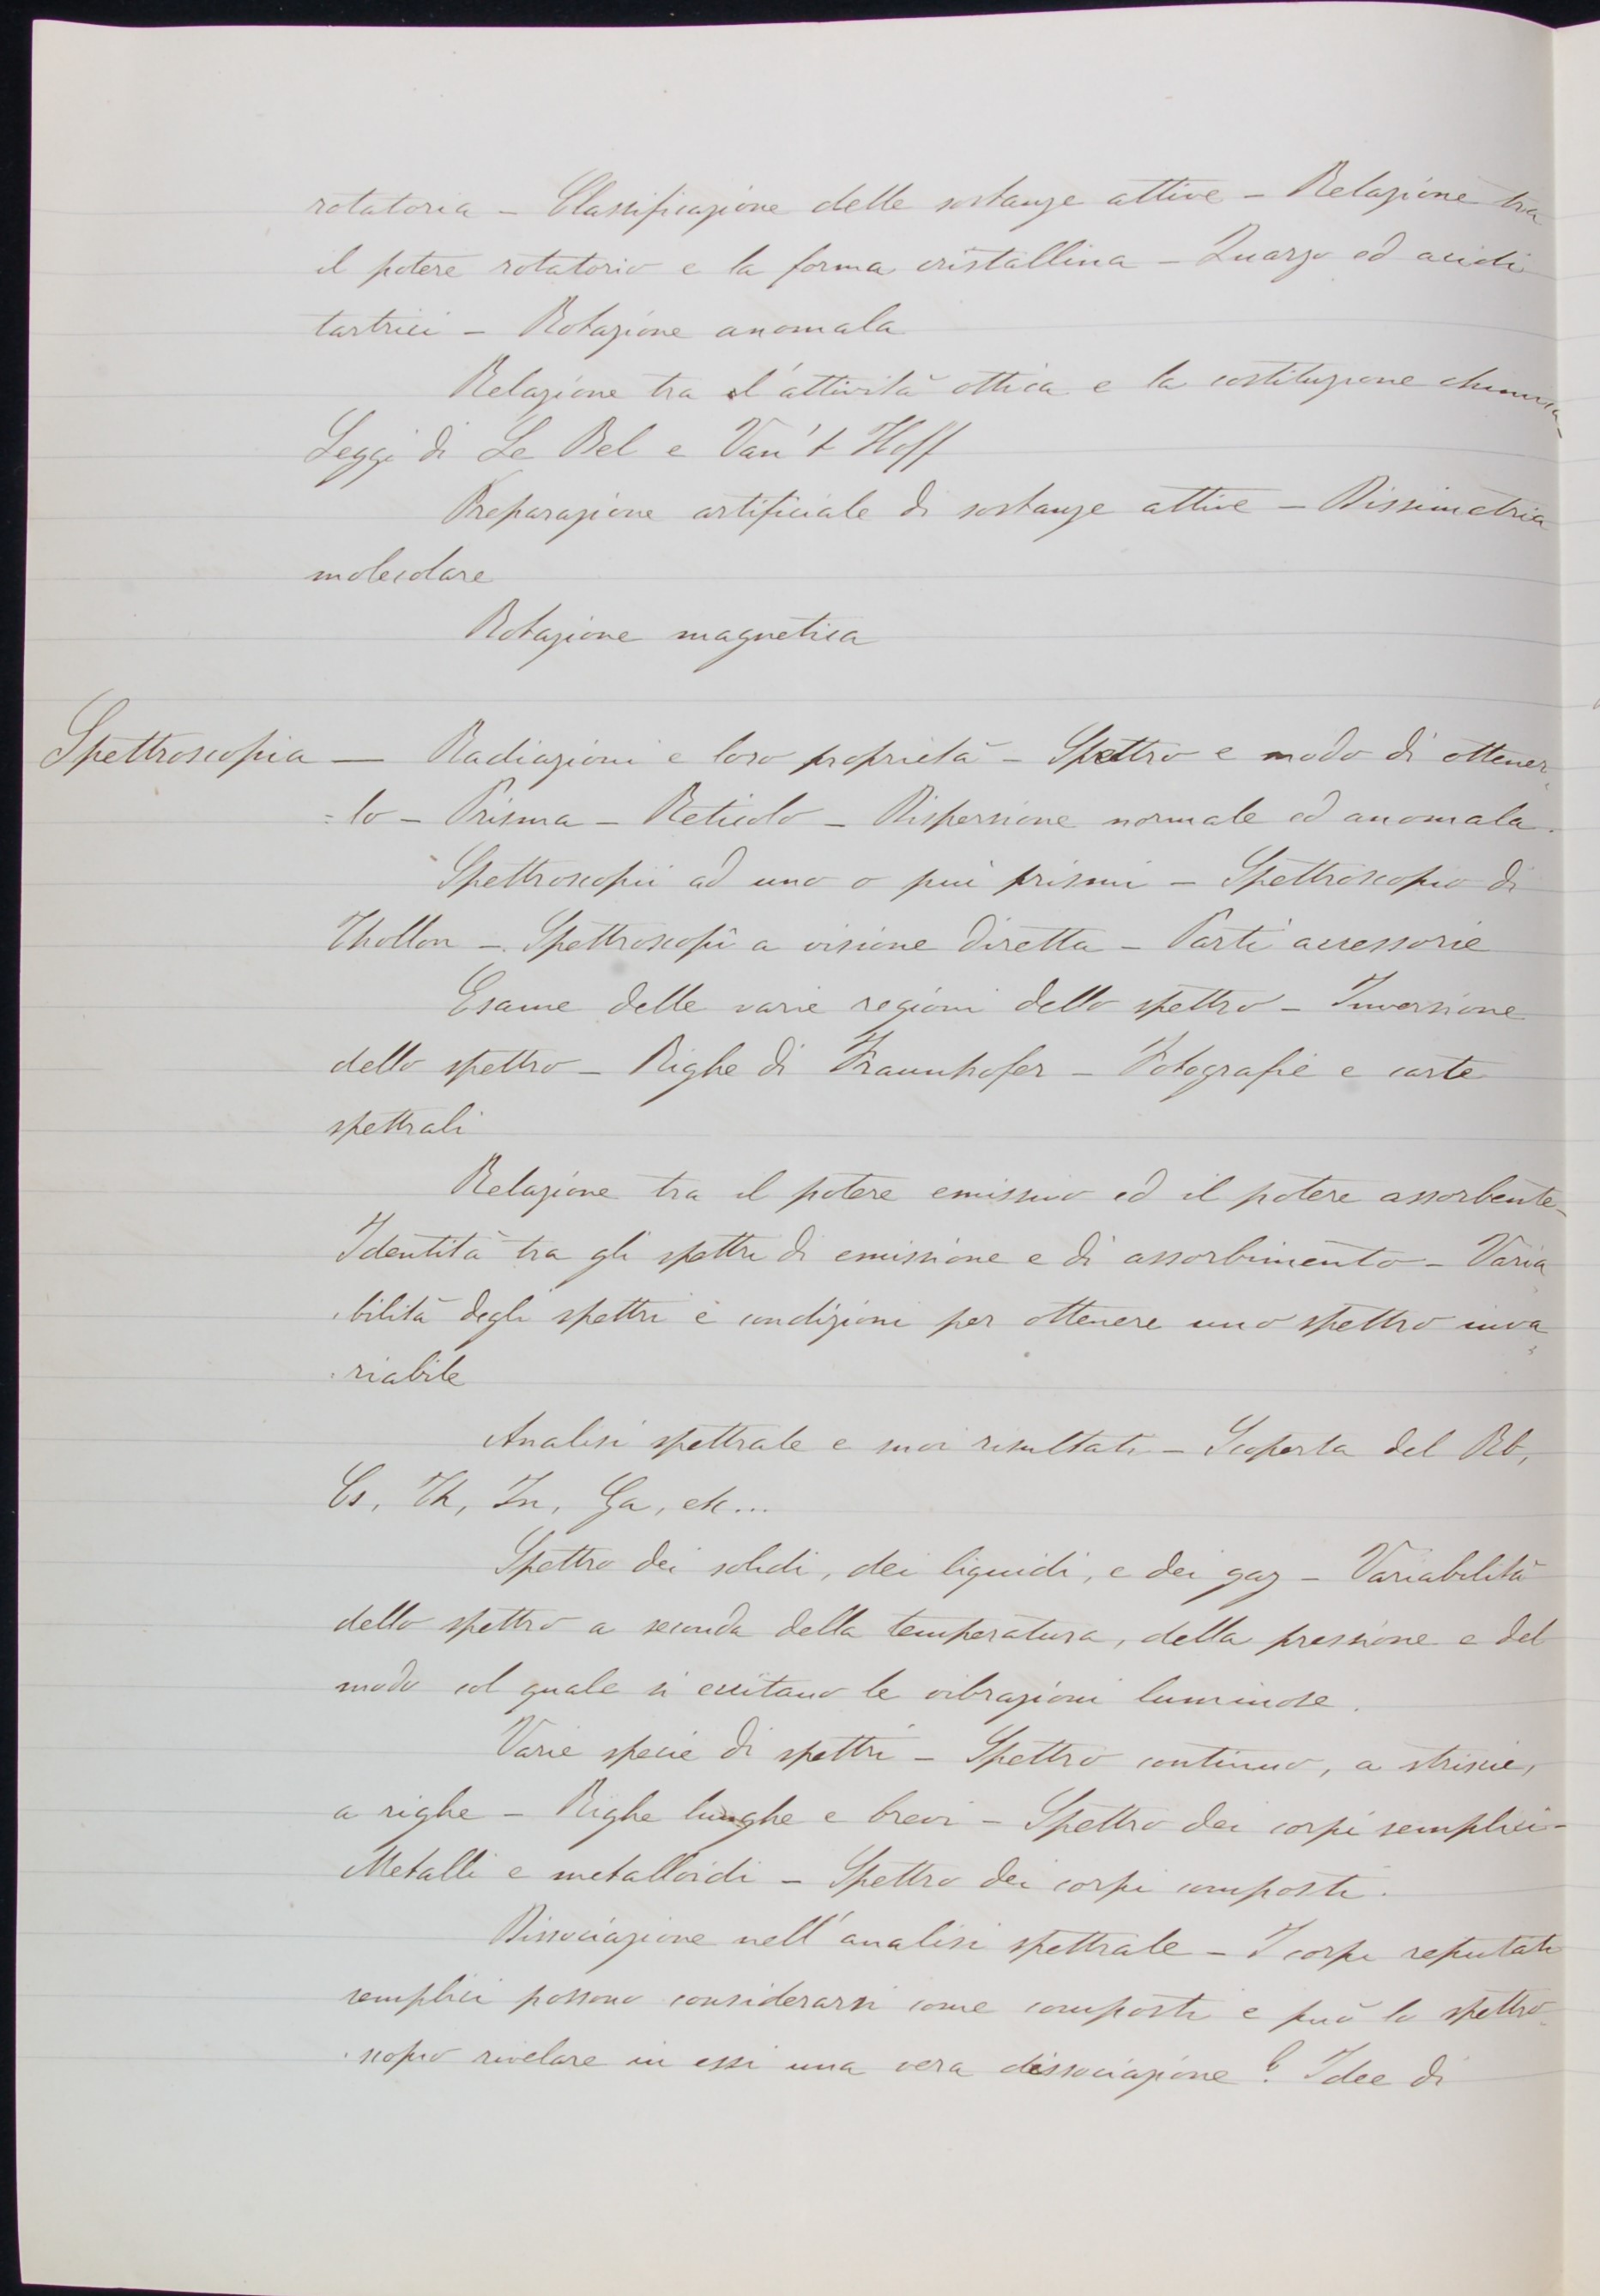 rotatoria – Classificazione delle sostanze attive – Relazione tra
il potere rotatorio e la forma cristallina – Quarzo ed acidi
tartrici – Rotazione anomala
Relazione tra l'attività ottica e la costituzione chimica –
Leggi di Le Bel e Van't Hoff
Preparazione artificiale di sostanze attive – Dissimetria
molecolare
Rotazione magnetica
Spettroscopia — Radiazioni e loro proprietà – Spettro e modo di ottener=
=lo – Prisma – Reticolo – Dispersione normale ed anomala.
Spettroscopii ad uno o più prismi – Spettroscopio di
Thollon – Spettroscopî a visione diretta – Parti accessorie
Esame delle varie regioni dello spettro – Inversione
dello spettro – Righe di Fraunhofer – Fotografie e carte
spettrali
Relazione tra il potere emissivo ed il potere assorbente –
Identità tra gli spettri di emissione e di assorbimento – Varia
bilità degli spettri e condizioni per ottenere uno spettro inva
riabile
Analisi spettrale e suoi risultati – Scoperta del Rb,
Cs, Th, In, Ga, etc...
Spettro dei solidi, dei liquidi, e dei gaz – Variabilità
dello spettro a seconda della temperatura, della pressione e del
modo col quale si eccitano le vibrazioni luminose.
Varie specie di spettri – Spettro continuo, a striscie,
a righe – Righe lunghe e brevi – Spettro dei corpi semplici –
Metalli e metalloidi – Spettro dei corpi composti.
Dissociazione nell'analisi spettrale – I corpi reputati
semplici possono considerarsi come composti e può lo spettro
scopio rivelare in essi una vera dissociazione? Idee di